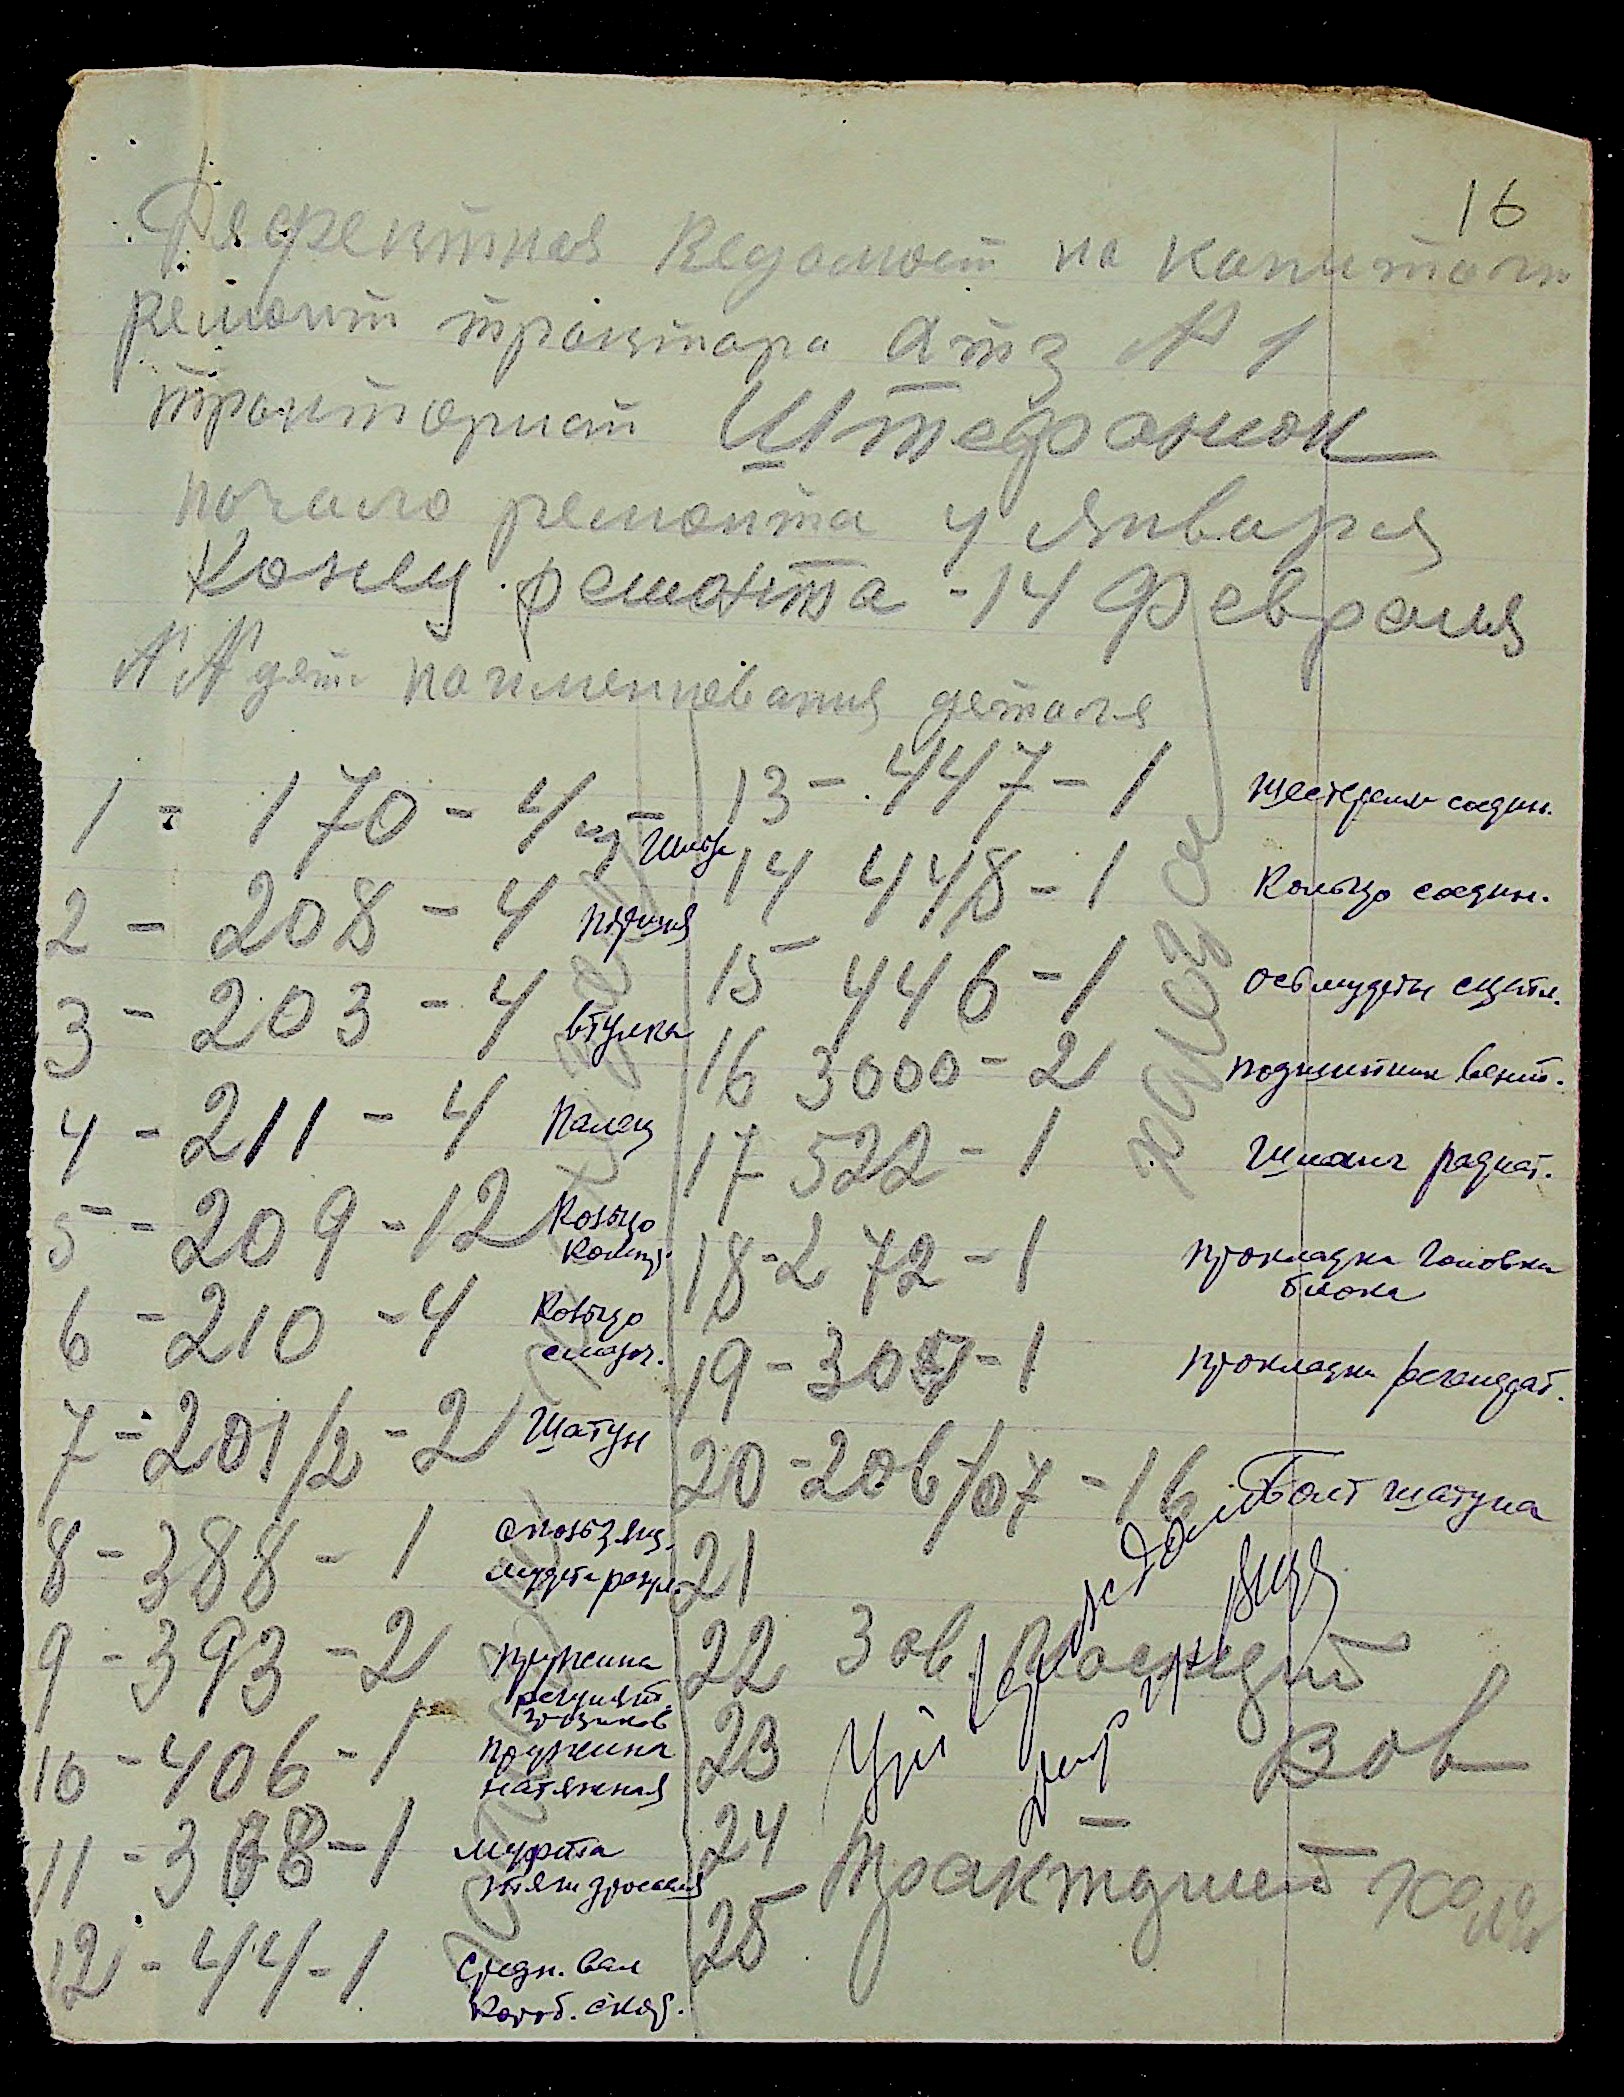 16
Дефектная Ведомост на капиталн
ремонт трактора Атз № 1
тракторист Штефанюк
начало ремонта 4 января
Конец ремонта - 14 Февраля
№ № дет наименнования деталя
1 - 170 - 4 Гильза
2 - 208 - 4 Поршня
3 - 203 - 4 втулки
4 - 211 - 4 Палец
5 - 209 - 12 Кольцо
Компр.
6 - 210 - 4 Кольцо
смазоч.
7 - 201/2 - 2 Шатун
8 - 388 - 1 скользящ.
муфта регул.
9 - 393 - 2 пружина
регулят.
грузиков
10 - 406 - 1 пружина
натяжная
11 - 388 - 1 муфта
тяги
12 - 44 - 1 средн. вал
короб. скор.
13 - 447 - 1 шестерня соедин.
14 448 - 1 Кольцо соедин.
15 446 - 1 ось муфты сцепл.
16 3000 - 2 подшипник вент.
17 522 - 1 Шланг радиат.
18 - 272 - 1 прокладка головки
блока
19 - 307 - 1 прокладка
20 - 206/07 - 16 Болт шатуна
21
22 Зав.
23
24
25